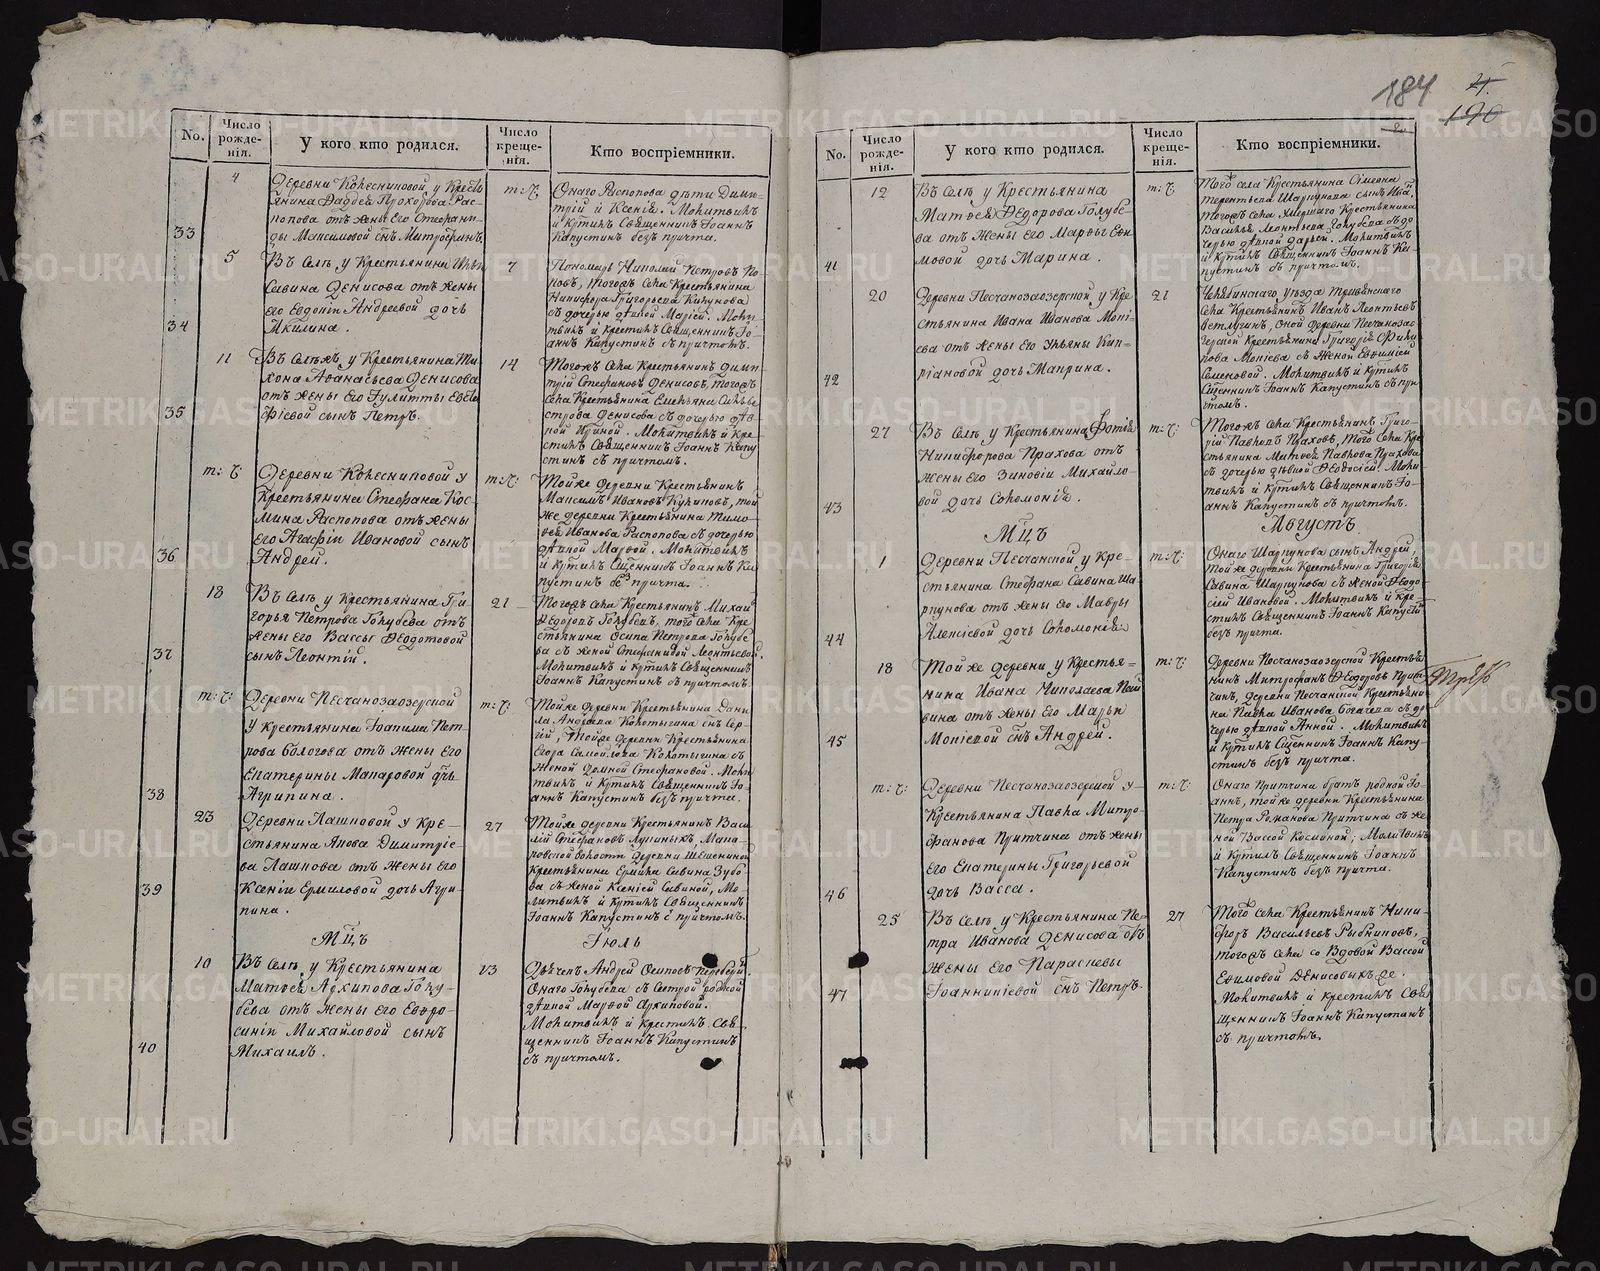 184
190
No.
Число рожденія.
У кого кто родился.
Число крещенія.
Кто воспріемники.
33
4
Деревни Колесниковой, у Кресть
янина Фаддея Прохорова Рас-
попова отъ жены Его Стефани-
ды Максимовой сн҃ъ Митрофанъ.
т: ч:
Онаго Распопова дѣти Дими-
трій и Ксенія. Молитвилъ
и Кр҃тилъ Священникъ Іоаннъ
Капустинъ безъ причта.
34
5
Въ Селѣ, у Крестьянина
Савина Денисова отъ жены
его Евдокіи Андреевой дочь
Акилина.
7
Пономарь Николай Петровъ По-
повъ, тогожъ села Крестьянина
Никифора Григорьева Кикунова
съ дочерью дѣвкой Маріей. Моли-
твилъ и крестилъ Священникъ Іо-
аннъ Капустинъ съ причтомъ.
35
11
Въ Селѣжъ, у Крестьянина Ти-
хона Аѳанасьева Денисова
отъ жены Его Іулитты Евсе
фіевой сынъ Петръ.
14
Тогожъ села Крестьянинъ Дими-
трій Стефановъ Денисовъ, тогожъ
села Крестьянина Емельяна Сильве-
строва Денисова съ дочерью дѣв-
кой Ириной. Молитвилъ и кре-
стилъ Священникъ Іоаннъ Капу
стинъ съ причтомъ.
36
т: ч:
Деревни Колесниковой у
Крестьянина Стефана Кос-
мина Распопова отъ жены
его Агафіи Ивановой сынъ
Андрей.
т: ч:
Тойже деревни Крестьянинъ
Максимъ Ивановъ Куликовъ, той
же деревни Крестьянина Тимо-
ѳея Иванова Распопова съ дочерью
дѣвкой Марѳой. Молитвилъ
и Кр҃тилъ Сщ҃енникъ Іоаннъ Ка
пустинъ безъ причта.
37
18
Въ Селѣ, у Крестьянина Гри-
горья Петрова Голубева отъ
жены его Вассы Ѳедотовой
сынъ Леонтій.
21
Тогожъ села Крестьянинъ Михаилъ
Ѳедоровъ Голубевъ, того села Кре-
стьянина Осипа Петрова Голубе
ва съ женой Стефанидой Леонтьевой.
Молитвилъ и Кр҃тилъ Священникъ
Іоаннъ Капустинъ съ причтомъ.
38
т: ч:
Деревни Песчанозаозерской
у Крестьянина Іоакима Пет-
рова Бологова отъ жены Его
Екатерины Макаровой дч҃ь
Агрипина.
т: ч:
Тойже деревни Крестьянина Дани
ла Андреева Колотыгина сн҃ъ Сер-
гій, Тойже деревни Крестьянина
Егора Савельева Колотыгина съ
женой Домной Стефановой. Моли
твилъ и Кр҃тилъ Священникъ Іо-
аннъ Капустинъ безъ причта.
39
23
Деревни Лашковой у Кре-
стьянина Якова Димитріе-
ва Лашкова отъ жены его
Ксеніи Ермиловой дочь Агри-
пина.
27
Тойже деревни Крестьянинъ Васи-
лій Стефановъ Лупиныхъ, Мака-
ровской волости деревни
Крестьянина Ермила Савина Зубо-
ва съ женой Ксеніей Савиной, Мо-
литвилъ и Кр҃тилъ Священникъ
Іоаннъ Капустинъ с причтомъ.
Мц҃ъ Іюль
40
10
Въ Селѣ, у Крестьянина
Матвея Архипова Голу-
бева отъ жены его Евфро-
синіи Михайловой сынъ
Михаилъ.
13
Дьячекъ Андрей Осиповъ
Онаго Голубева съ сестрой родной
дѣвкой Марѳой Архиповой.
Молитвилъ и крестилъ Свя-
щенникъ Іоаннъ Капустинъ
съ причтомъ.
No.
Число рожденія.
У кого кто родился.
Число крещенія.
Кто воспріемники.
41
12
Въ Селѣ у Крестьянина
Матвея Ѳедорова Голубе-
ва отъ жены Его Марѳы Еѳи-
мовой дочь Марина.
т: ч:
Того села Крестьянина Сімеона
Терентьева Шарпунова сынъ Иванъ,
тогожъ села Крестьянина
Василья Леонтьева Голубева съ до
черью дѣвкой Дарьей. Молитвилъ
и Кр҃тилъ Священникъ Іоаннъ Ка-
пустинъ съ причтомъ.
42
20
Деревни Песчанозаозерской, у Кре
стьянина Ивана Иванова Мокі-
ева отъ жены его Ульяны Кип-
ріановой дочь Макрина.
21
Челябинскаго уѣзда
села Крестьянинъ Иванъ Леонтьевъ
Ветлугинъ, оной деревни Песчанозао-
зерской Крестьянина Григорія
Мокіева съ женой Евфиміей
Семеновой. Молитвилъ и Кр҃тилъ
Сщ҃енникъ Іоаннъ Капустинъ съ при
чтомъ.
43
27
Въ Селѣ, у Крестьянина Фотія
Никифорова Прахова отъ
жены его Зиновіи Михайло-
вой дочь Соломонія.
т: ч:
Тогожъ села Крестьянинъ Григо-
рій Павловъ Праховъ, того села Кре
стьянина Матвея Павлова Прахова
съ дочерью дѣвкой Ѳедосіей. Моли
твилъ и Кр҃тилъ Священникъ Іо-
аннъ Капустинъ съ причтомъ.
Мц҃ъ Августъ
44
1
Деревни Песчанской у Кре-
стьянина Стефана Савина Ша-
рпунова отъ жены его Мавры
Алексіевой дочь Соломонія.
т: ч:
Онаго Шарпунова сынъ Андрей,
тойже деревни Крестьянина Григорія
Савина Шарпунова съ женой Ѳеодо-
сіей Ивановой. Молитвилъ и кре-
стилъ Священникъ Іоаннъ Капустинъ
безъ причта.
45
18
Тойже деревни, у Крестья-
нина Ивана Николаева
отъ жены его Марьи
Мокіевой сн҃ъ Андрей.
т: ч:
Деревни Песчанозаозерской Крестья
нинъ Митрофанъ Ѳедоровъ Прит-
чинъ, деревни Песчанской Крестьяни
на Павла Иванова съ до
черью дѣвкой Анной. Молитвилъ
и Кр҃тилъ Сщ҃енникъ Іоаннъ Капу-
стинъ безъ причта.
46
т: ч:
Деревни Песчанозаозерской у
Крестьянина Павла Митро-
фанова Притчина отъ жены
Его Екатерины Григорьевой
дочь Васса.
т: ч:
Онаго Притчина братъ родной Іо-
аннъ, тойже деревни Крестьянина
Петра Романова Притчина съ же
ной Вассой Косминой; Молитвилъ
и Кр҃тилъ Священникъ Іоаннъ
Капустинъ безъ причта.
47
25
Въ Селѣ, у Крестьянина Пе-
тра Иванова Денисова отъ
жены Его Параскевы
Іоанникіевой сн҃ъ Петръ.
27
Того села Крестьянинъ Ники-
форъ Васильевъ Рыбниковъ,
тогожъ села со вдовой Вассой
Еѳимовой Денисовыхъ же.
Молитвилъ и крестилъ Свя
щенникъ Іоаннъ Капустинъ
съ причтомъ.
METRIKI.GASO-URAL.RU